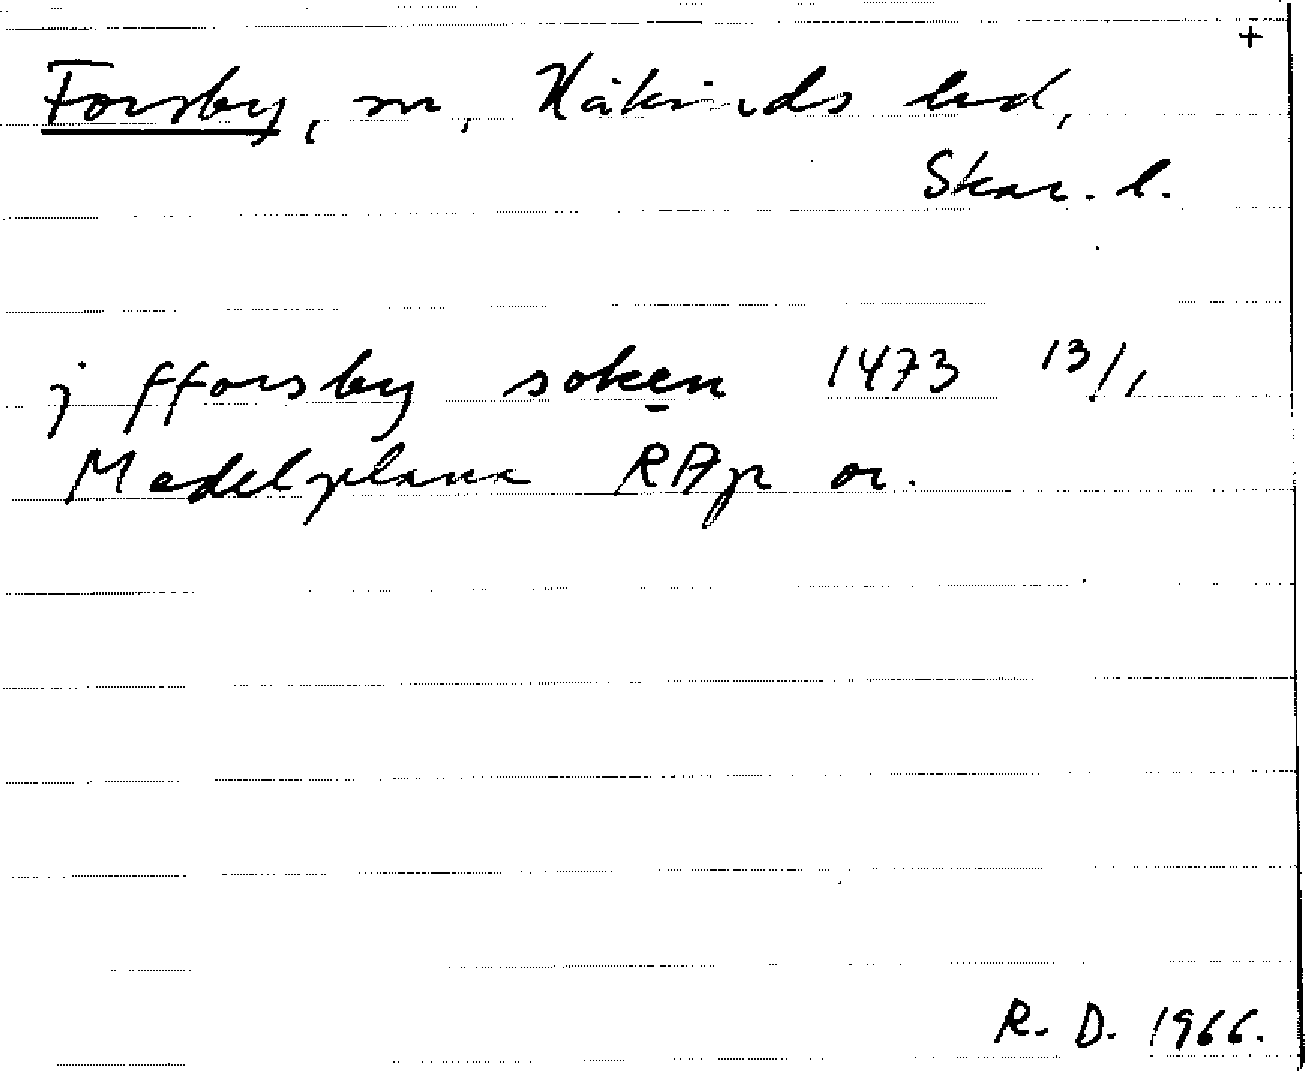 +
Forsby, sn, Kåkinds hd,
Skar. l.
j fforsby soken 1473 13/1
Medelplana RAp or.
R. D. 1966.